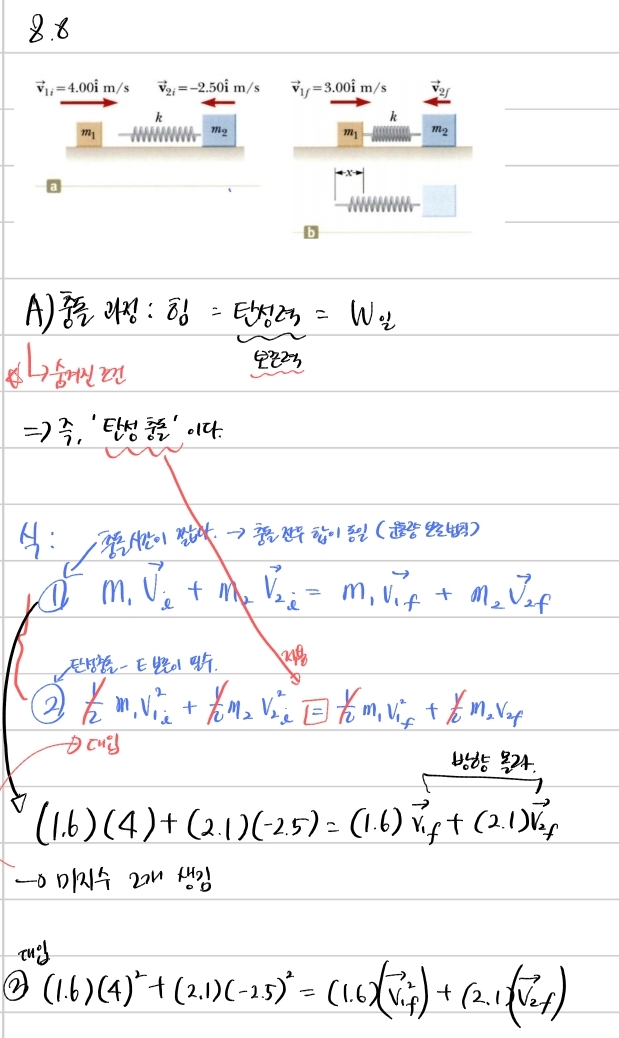 8.8
v⃗₁ᵢ=4.00î m/s v⃗₂ᵢ=−2.50î m/s v⃗₁f=3.00î m/s v⃗₂f
k k
m₁ m₂ m₁ m₂
x
a
b
A) 충돌 과정 : 힘 = 탄성력 = W일
보존력
↳ 숨겨진 조건
⇒ 즉, '탄성 충돌' 이다.
식 : 충돌시간이 짧다. → 충돌 전후 합이 동일 (운동량 보존법칙)
① m₁V⃗ᵢ + m₂V⃗₂ᵢ = m₁v⃗₁f + m₂v⃗₂f
탄성충돌 - E 보존이 필수. 적용
② ½m₁V₁ᵢ² + ½m₂V₂ᵢ² = ½m₁V₁f² + ½m₂V₂f
대입
방향 몰라.
(1.6)(4)+(2.1)(-2.5) = (1.6)v⃗₁f + (2.1)v⃗₂f
→ 미지수 2개 생김
대입
② (1.6)(4)² + (2.1)(-2.5)² = (1.6)(v⃗₁f²) + (2.1)(v⃗₂f)